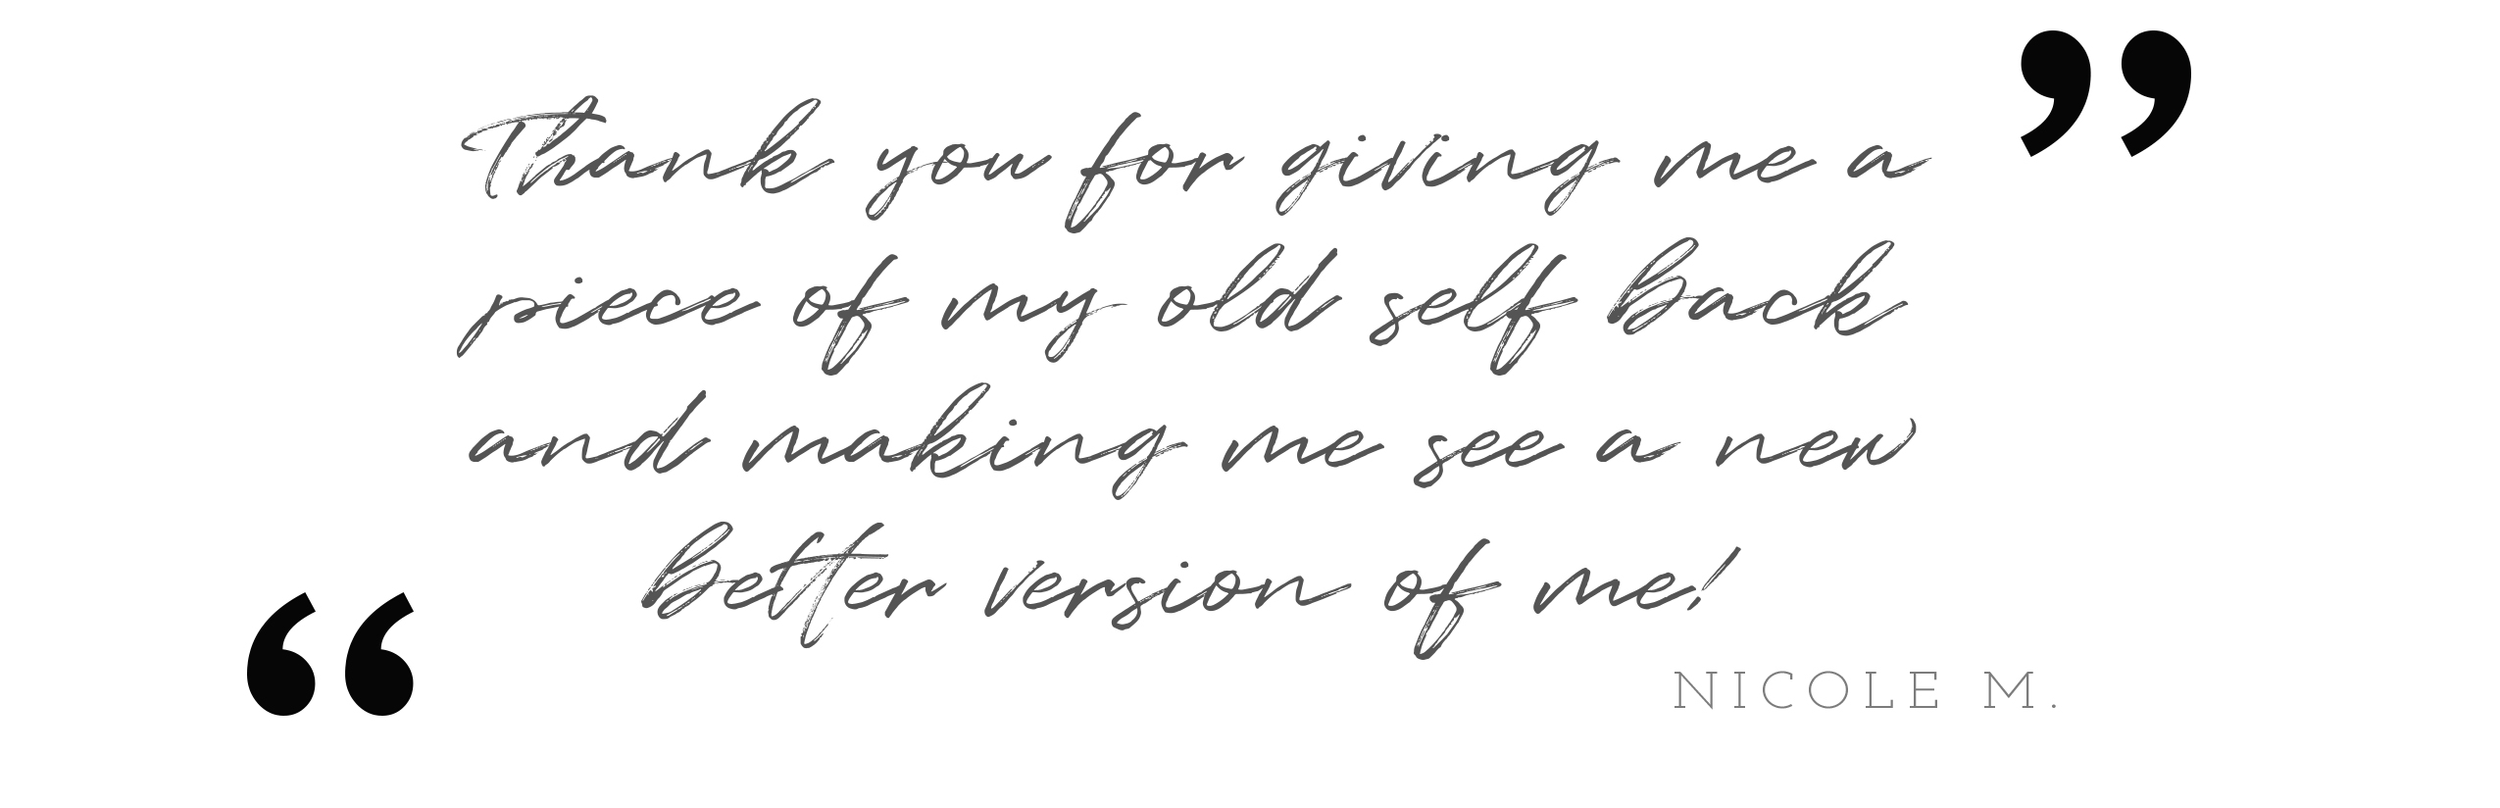 ”
Thank you for giving me a
piece of my old self back
and making me see a new
better version of me!
“
NICOLE M.